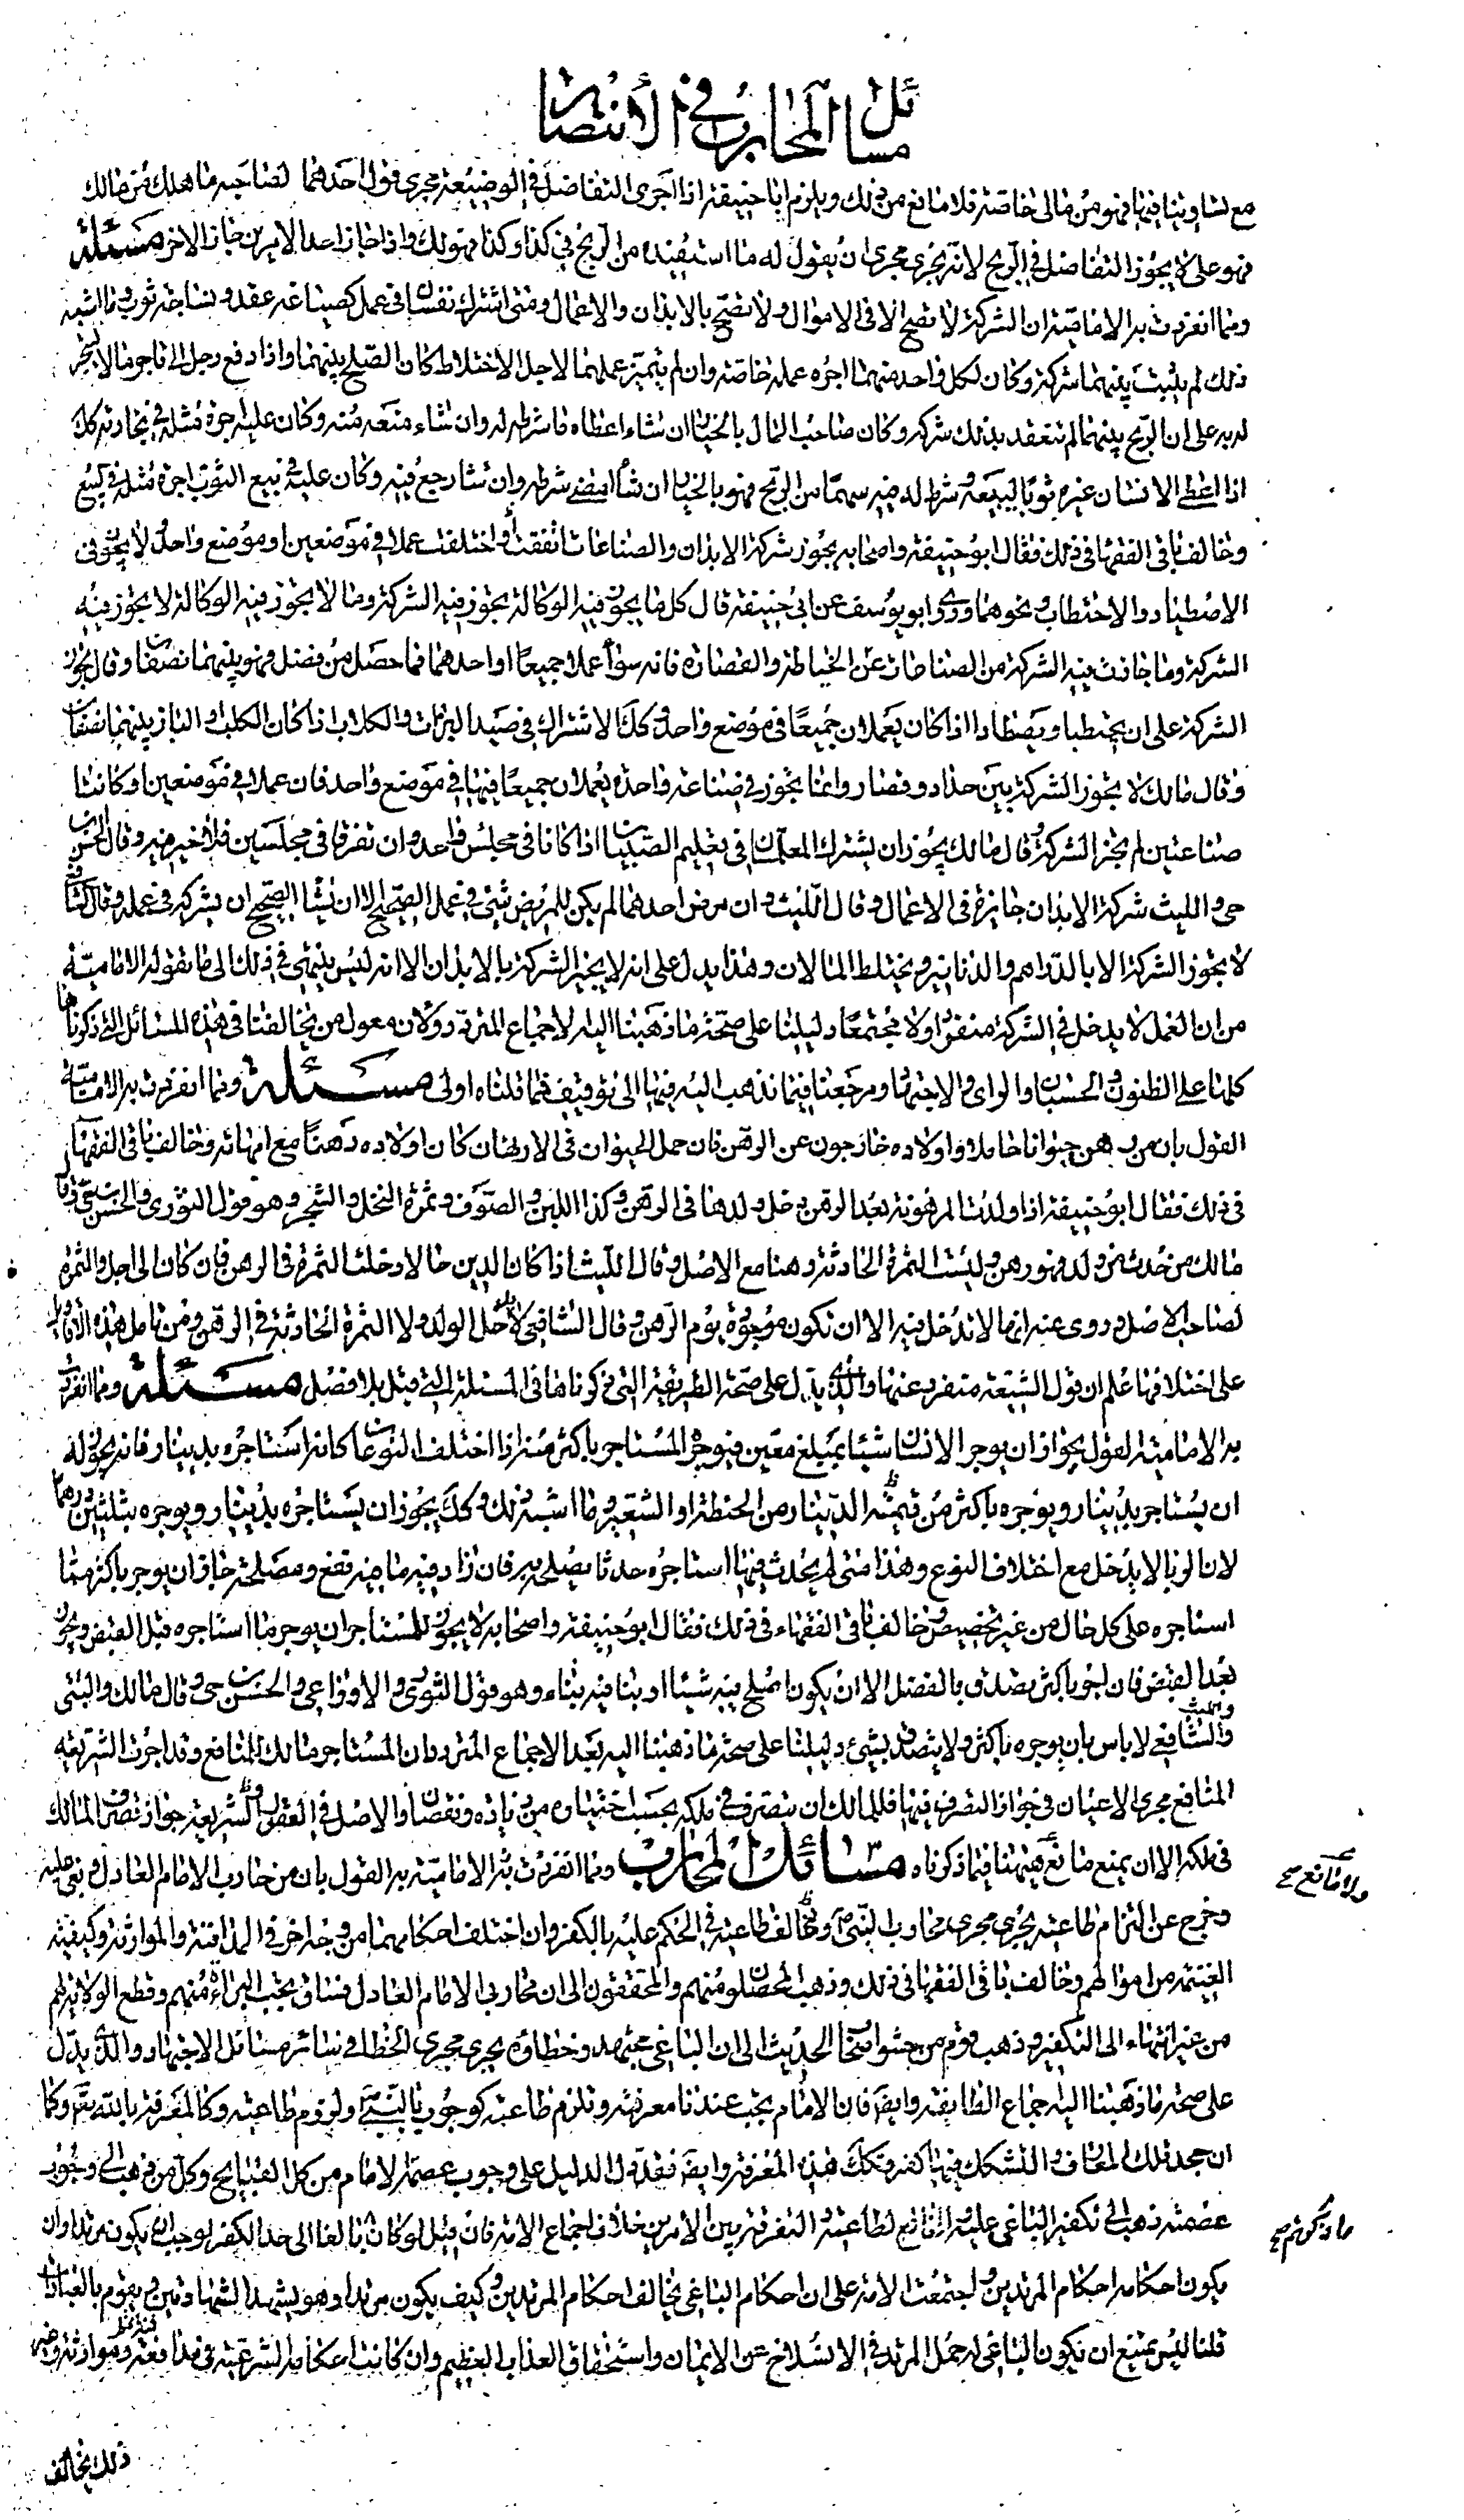 مسائل المحارب في الانتصار
مع تساوينا فيها فهو من مالى خاصة فلا مانع من ذلك ويلزم ابا حنيفة اذا اجرى التفاضل في الوضيعة مجرى قول احدهما لصاحبه ما هلك من مالك
فهو على لا يجوز التفاضل في الربح لانه يجرى مجرى ان يقول له ما استفيده من الربح في كذا وكذا فهو لك واذا جاز احد الامرين جاز الاخر مسئلة
ومما انفردت به الامامية ان الشركة لا تصح الا في الاموال ولا تصح بالابدان والاعمال ومتى اشترك نفسان في عمل كصياغة عقد ونساجة ثوب وما اشبه
ذلك لم يثبت بينهما شركة وكان لكل واحد منهما اجره عمله خاصة وان لم يتميز عملهما لاجل الاختلاط كان الصلح بينهما واذا دفع رجل الى تاجر مالا ليتجر
له به على ان الربح بينهما لم تنعقد بذلك شركة وكان صاحب المال بالخيار ان شاء اعطاه ما شرط له وان شاء منعه منه وكان عليه اجرة مثله في تجارته كك
اذا اعطى الانسان غيره ثوبا ليبيعه وشرط له فيه سهما من الربح فهو بالخيار ان شاء امضى شرطه وان شاء رجع فيه وكان عليه في بيع الثوب اجرة مثله في بيع
وخالف باقى الفقها في ذلك فقال ابو حنيفة واصحابه يجوز شركة الابدان والصناعات اتفقت او اختلفت عملا في موضعين او موضع واحد ولا يجوز في
الاصطياد والاحتطاب ونحوهما وروى ابو يوسف عن ابى حنيفة قال كل ما يجوز فيه الوكالة يجوز فيه الشركة وما لا يجوز فيه الوكالة لا يجوز فيه
الشركة وما جازت فيه الشركة من الصناعات عن الخياطة والقصارة فانه سواء عملا جميعا او احدهما فما حصل من فضل فهو بينهما نصفان وقال يجوز
الشركة على ان يحتطبا ويصطادا اذا كان يعملان جميعا في موضع واحد وكك الاشتراك في صيد البزات والكلاب اذا كان الكلب والباز بينهما نصفان
وقال مالك لا يجوز الشركة بين حداد وقصار وانما يجوز في صناعة واحدة يعملان جميعا فيها في موضع واحد فان عملا في موضعين او كانتا
صناعتين لم يجز الشركة وقال مالك يجوز ان يشترك المعلمان في تعليم الصبيان اذا كانا في مجلس واحد وان تفرقا في مجلسين فلا خير فيه وقال الحسن بن
حى والليث شركة الابدان جايزة في الاعمال وقال الليث وان مرض احدهما لم يكن للمريض شئ في عمل الصحيح الا ان يشاء الصحيح ان يشركه في عمله وقال الشافعى
لا يجوز الشركة الا بالدراهم والدنانير ويختلط المالان وهذا يدل على انه لا يجيز الشركة بالابدان الا انه ليس ينتهى في ذلك الى ما تقوله الامامية
من ان العمل لا يدخل في الشركة منفردا ولا مجتمعا دليلنا على صحة ما ذهبنا اليه الاجماع المتردد ولان معول من يخالفنا في هذه المسائل التى ذكرناها
كلها على الظنون والحسبان والراى والاجتهاد ومرجعنا فيما نذهب اليه فيها الى توقيف فما قلناه اولى مسئلة ومما انفردت به الامامية
القول بان من رهن حيوانا حاملا واولاده خارجون عن الرهن فان حمل الحيوان في الارتهان كان اولاده رهنا مع امهاته وخالف باقى الفقهاء
في ذلك فقال ابو حنيفة اذا ولدت المرهونة بعد الرهن دخل ولدها في الرهن وكذا اللبن والصوف وثمرة النخل والشجر وهو قول الثورى والحسن بن حى وقال
مالك من حدث من ولد فهو رهن وليست الثمرة الحادثة رهنا مع الاصل وقال الليث اذا كان الدين حالا دخلت الثمرة في الرهن فان كان الى اجل والثمرة
لصاحب الاصل وروى عنه انها لا تدخل فيه الا ان تكون موجودة يوم الرهن وقال الشافعى لا يدخل الولد ولا الثمرة الحادثة في الرهن ومن تامل هذه الاقاويل
على اختلافها علم ان قول الشيعة منفرد عنها والذى يدل على صحة الطريقة التى ذكرناها في المسئلة التى قبل بلا فصل مسئلة ومما انفردت
به الامامية القول بجواز ان يوجر الانسان شيئا بمبلغ معين فيوجره المستاجر باكثر منه اذا اختلف النوعان كانه استاجره بدينار فانه يجوز له
ان يستاجر بدينار ويوجره باكثر من قيمة الدينار من الحنطة او الشعير وما اشبه ذلك وكك يجوز ان يستاجره بدينار ويوجره بثلثين درهما
لان الربا لا يدخل مع اختلاف النوع وهذا متى لم يحدث فيما استاجره حدثا يصلح به فان زاد فيه ما فيه نفع ومصلحة جاز ان يوجر باكثر مما
استاجره على كل حال من غير تخصيص وخالف باقى الفقهاء في ذلك فقال ابو حنيفة واصحابه لا يجوز للمستاجر ان يوجر ما استاجره قبل القبض ويجوز
بعد القبض فان اجره باكثر تصدق بالفضل الا ان يكون اصلح فيه شيئا او بنا فيه بناء وهو قول الثورى والاوزاعى والحسن بن حى وقال مالك والبتى
والليث
والشافعى لا باس بان يوجره باكثر ولا يتصدق بشئ دليلنا على صحة ما ذهبنا اليه بعد الاجماع المتردد ان المستاجر مالك للمنافع وقد اجرت الشريعة
المنافع مجرى الاعيان في جواز التصرف فيها فللمالك ان يتصرف في ملكه بحسب اختياره من زيادة ونقصان والاصل في العقل والشريعة جواز تصرف المالك
في ملكه الا ان يمنع مانع هيهنا فيما ذكرناه مسائل المحارب ومما انفردت به الامامية به القول بان من حارب الامام العادل وبغى عليه
ولا مانع صح
وخرج عن التزام طاعته يجرى مجرى محارب النبى ص وخالف طاعته في الحكم عليه بالكفر وان اختلف احكامهما من وجه اخر في المدافنة والموارثة وكيفية
الغنيمة من اموالهم وخالف باقى الفقها في ذلك وذهب المحصلون منهم والمحققون الى ان محاربى الامام العادل فساق يجب البراءة منهم وقطع الولاية لهم
من غير انتهاء الى التكفير وذهب قوم من حشو اصحاب الحديث الى ان الباغى مجتهد وخطاؤه يجرى مجرى الخطا في سائر مسائل الاجتهاد والذى يدل
على صحة ما ذهبنا اليه اجماع الطايفة وايضا فان الامام يجب عندنا معرفته وتلزم طاعته كوجوب النبى ولزوم طاعته وكالمعرفة بالله تعالى وكما
ان جحد تلك المعارف والتشكك فيها كفر وكك هذه المعرفة وايضا فقد دل الدليل على وجوب عصمة الامام من كل القبايح وكل من ذهب الى وجوب
عصمته ذهب الى تكفير الباغى عليه والخالع لطاعته والتفرقة بين الامرين خلاف اجماع الامة فان قيل لو كان بالغا الى حد الكفر لوجب ان يكون مرتدا وان
ما ذكرتم صح
يكون احكامه احكام المرتدين واجتمعت الامة على ان احكام الباغى يخالف احكام المرتدين وكيف يكون مرتدا وهو يشهد الشهادتين ويقوم بالعبادات
قلنا ليس يمتنع ان يكون الباغى له حكم المرتد في الانسلاخ عن الايمان واستحقاق العذاب العظيم وان كانت احكامه الشرعية في مدافنته وموارثته وغير
ذلك يخالف